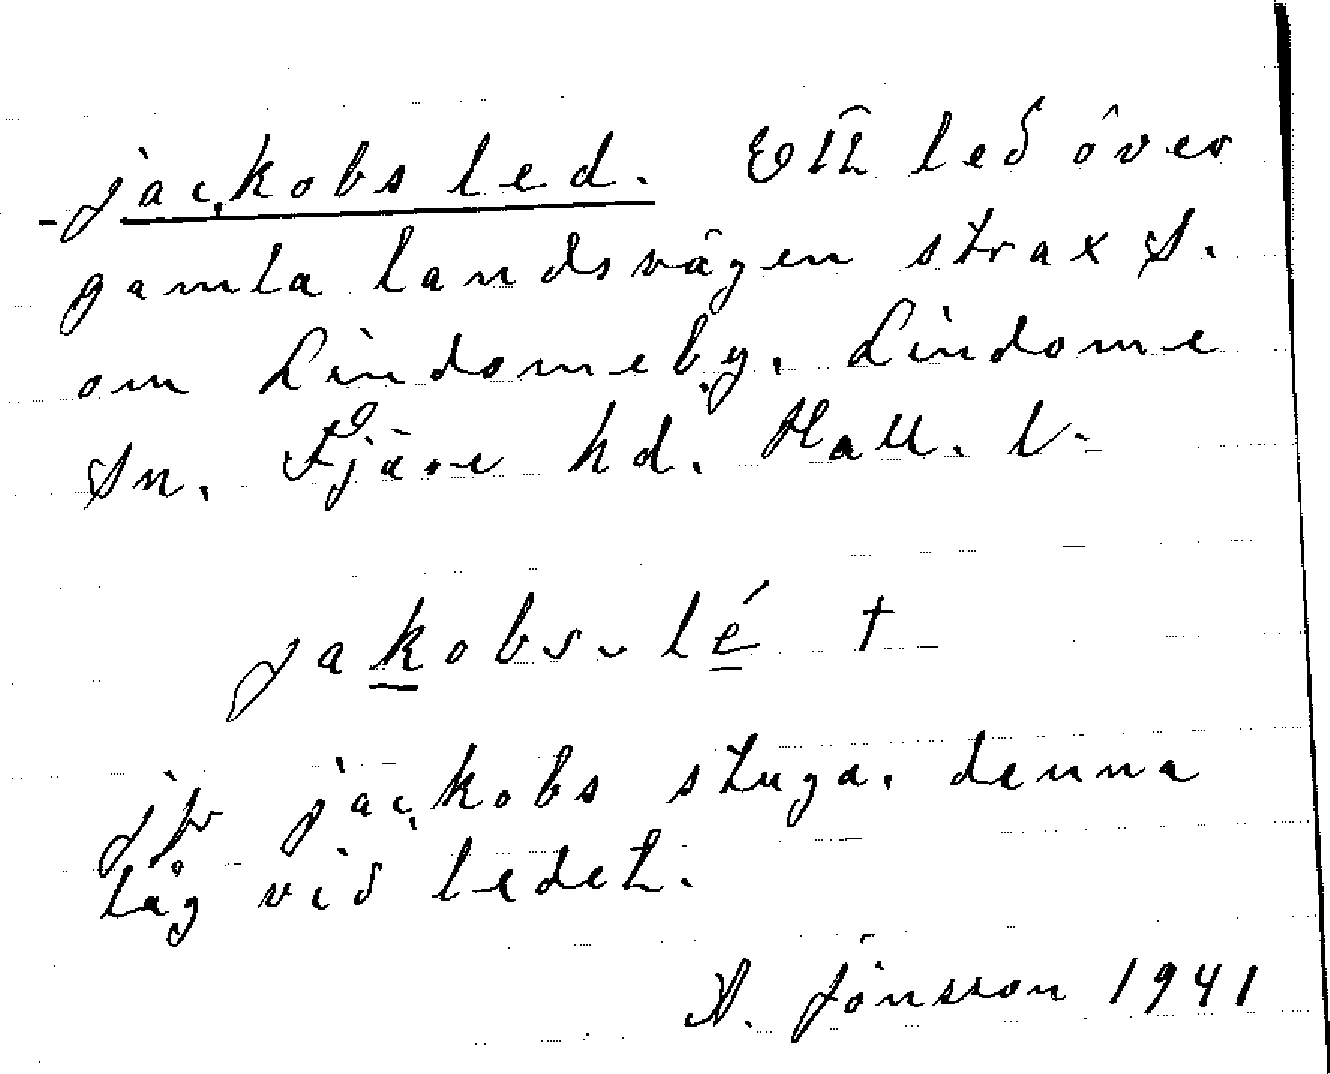 Jackobs led. Ett led över
gamla landsvägen strax S.
om Lindomeby. Lindome
Sn. Fjäre hd. Hall. l.
jakobs-lé †
jfr jackobs stuga. denna
låg vid ledet.
A. Jönsson 1941